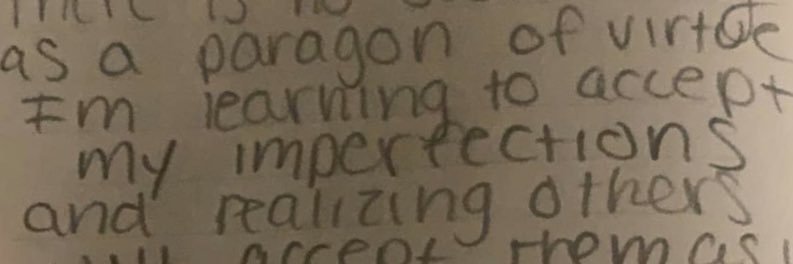 There is no
as a paragon of virtue
I'm learning to accept
my imperfections
and realizing others
will accept them as